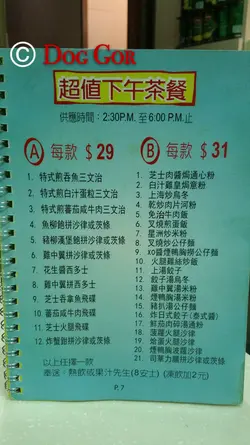 © DOG GOR
超值下午茶餐
供應時間：2:30P.M. 至6:00 P.M.止
A 每款 $29
1. 特式煎吞魚三文治
2. 特式煎白汁蛋粒三文治
3. 特式煎蕃茄咸牛肉三文治
4. 魚柳飽拼沙律或茨條
5. 豬柳漢堡飽拼沙律或茨條
6. 雞中翼拼沙律或茨條
7. 花生醬西多士
8. 雞中翼拼西多士
9. 芝士吞拿魚飛碟
10. 蕃茄咸牛肉飛碟
11. 芝士火腿飛碟
12. 炸蟹鉗拼沙律或茨條
以上任擇一款
奉送：熱飲或果汁先生(8安士) (凍飲加2元)
B 每款 $31
1. 芝士肉醬焗通心粉
2. 白汁雞皇焗意粉
3. 上海炒烏冬
4. 乾炒肉片河粉
5. 免治牛肉飯
6. 叉燒煎蛋飯
7. 星洲炒米粉
8. 叉燒炒公仔麵
9. xo醬炆鴨胸撈公仔麵
10. 火腿雞絲炒飯
11. 上湯餃子
12. 餃子湯烏冬
13. 雞中翼湯米粉
14. 煙鴨胸湯米粉
15. 豬扒湯公仔麵
16. 炸日式餃子(泰式醬)
17. 鮮茄肉碎湯通粉
18. 菠蘿火腿沙律
19. 雜果火腿沙律
20. 煙鴨胸波蘿沙律
21. 司華力腸拼沙律或茨條
P. 7